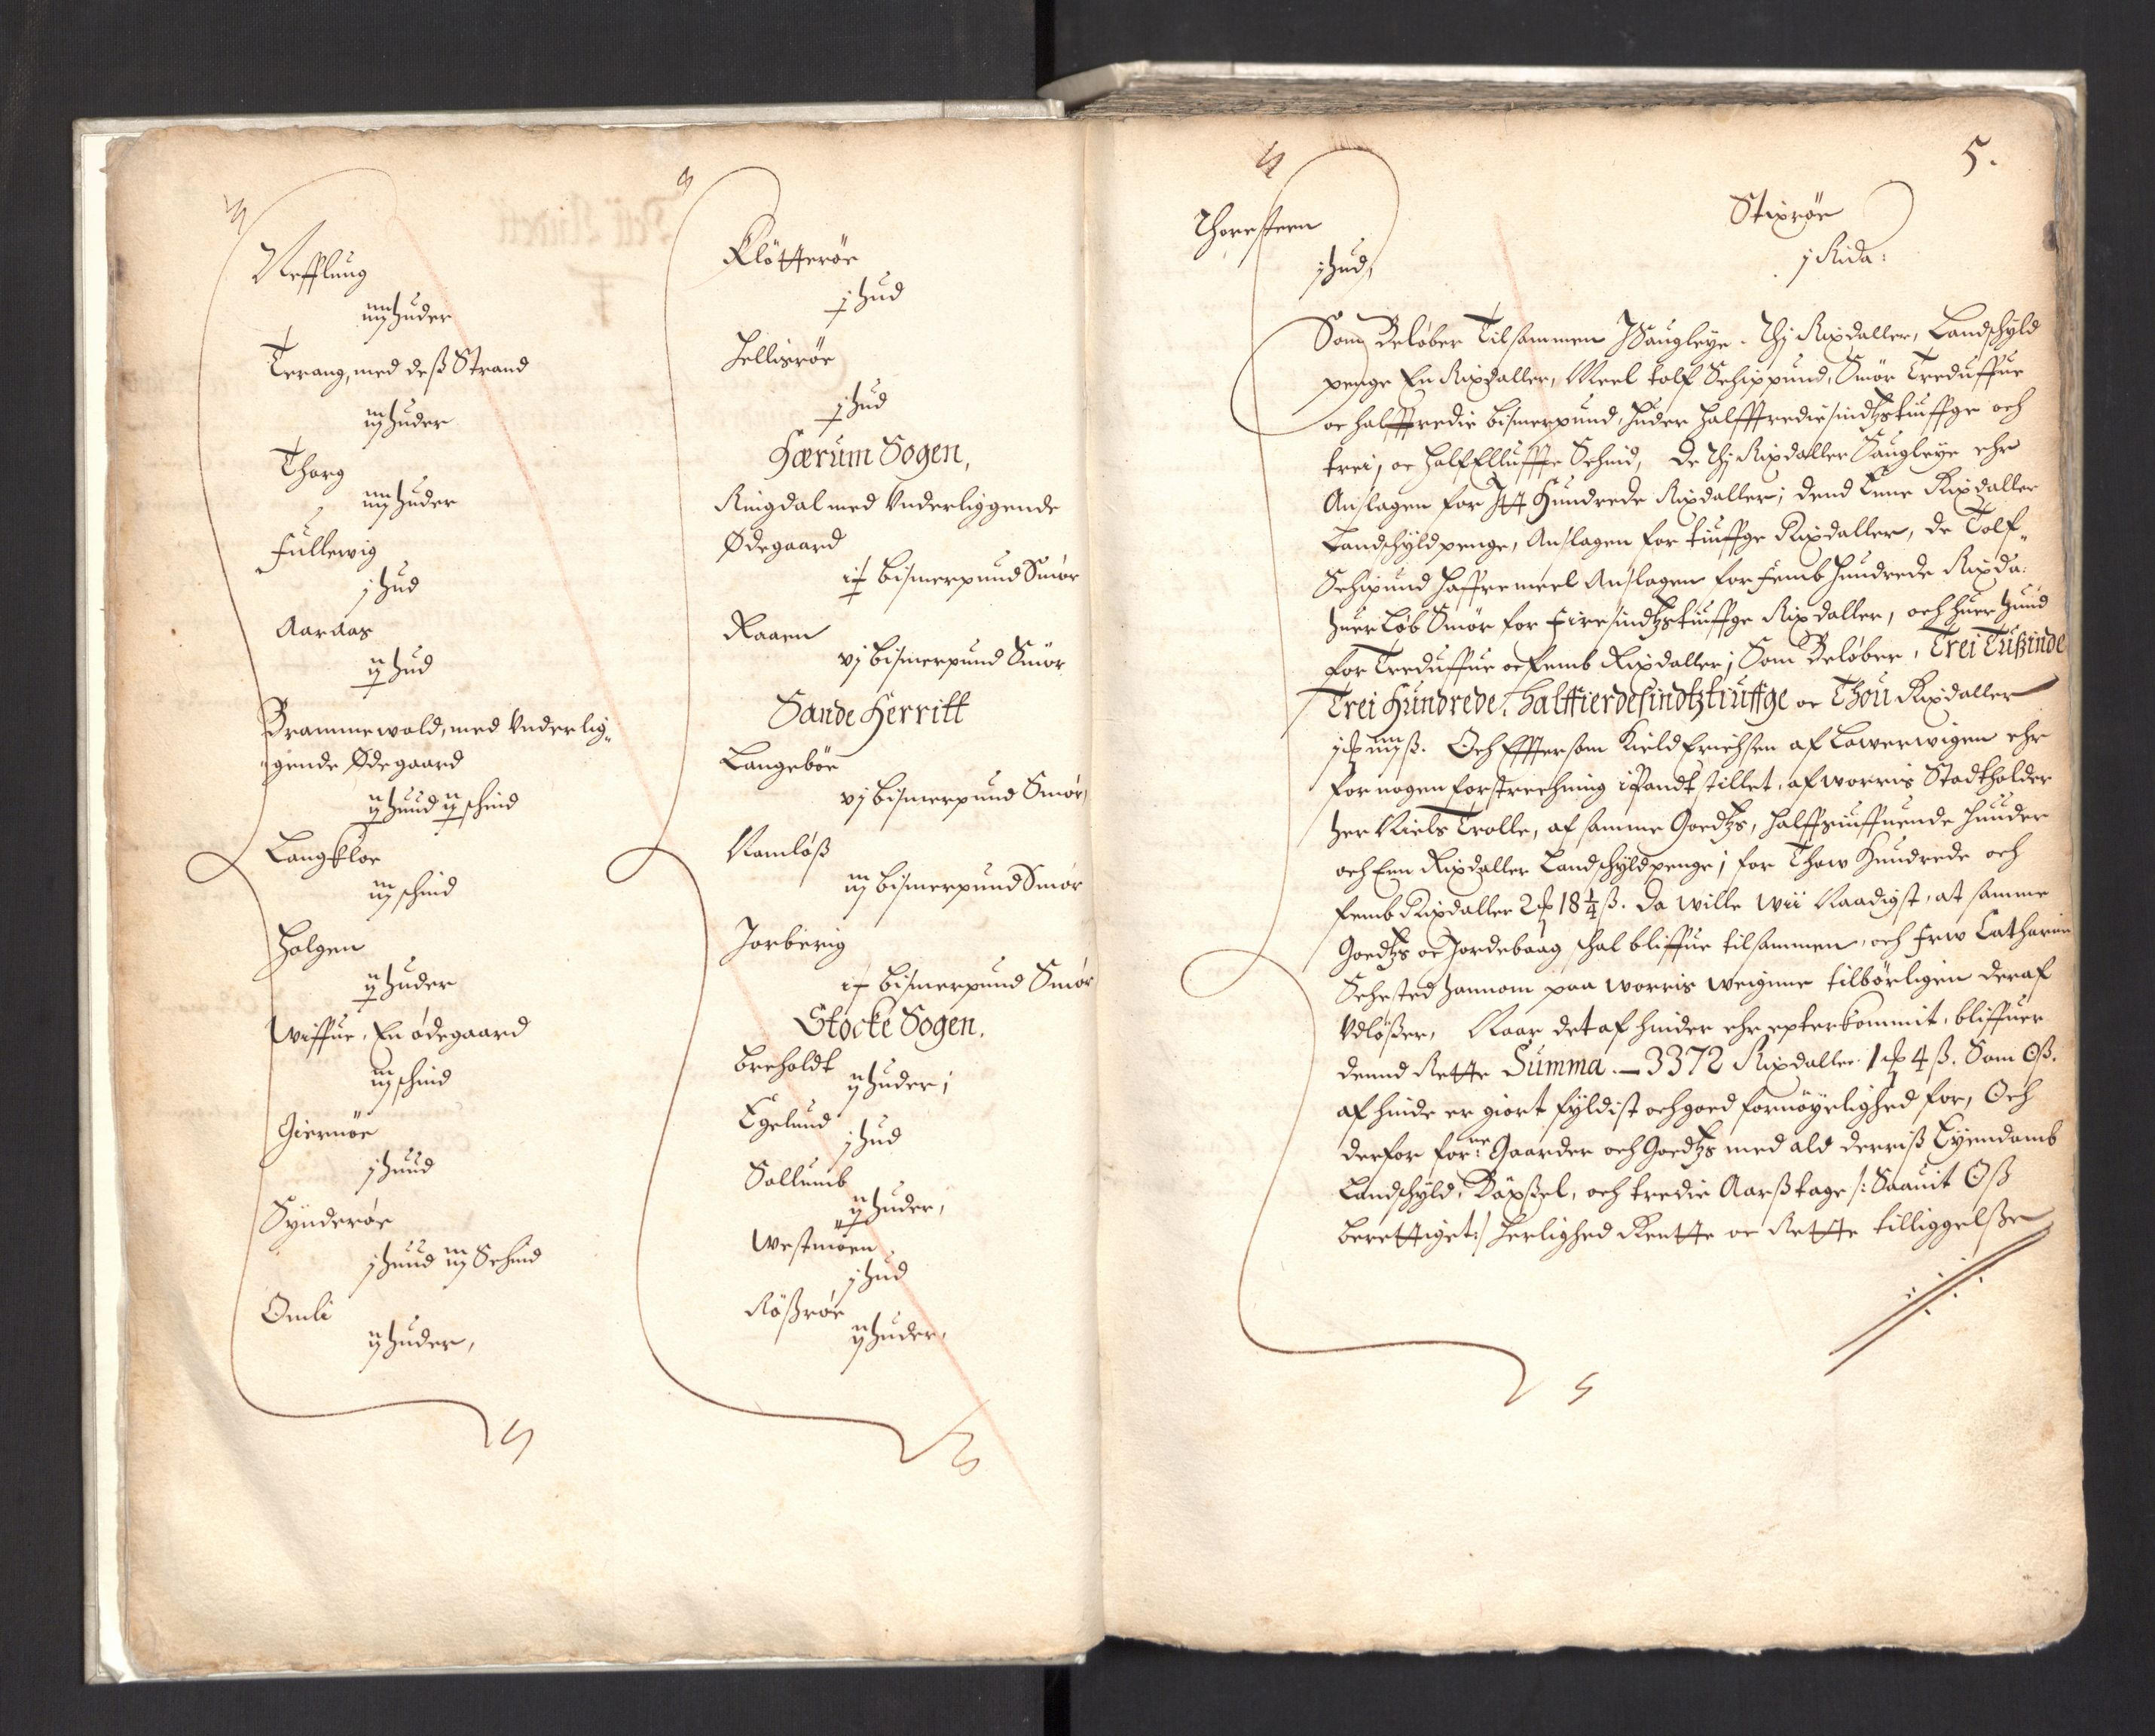 Nefflung
iiij huder
Terang, med deß Strand
iij huder
Thorg
iiij huder
Fullewig
j hud
Aaraas
ij hud
Brammewald, med Vnderlig„
gende Ødegaard
ij huud ij schind
Langkloe
iij schind
Holgen
ij huder
Wiffue, En ødegaard
iij schind
Giernøe
j huud
Synderøe
j huud iij Schind
Omli
ij huder,
Kløtterøe
j hud
Hellisrøe
j hud
Hærum Sogen,
Ringdal med Vnderliggende
Ødegaard
Bismerpund Smør
Raaen
vj Bismerpund Smør
Sande Herritt
Langebøe
vj Bismerpund Smør,
Ramløß
iij Bismerpund Smør
Jorberig
Bismerpund Smør
Stocke Sogen.
Breholdt
ij huder;
Egelund
j hud
Sollumb
ij huder,
Westmøen
j hud
Røßrøe
ij huder,
5.
Thoresteen
j hud,
Stixrøe
j Rida:
Som Beløber Tilsammen J Saugleye. Thj Rixdaller, Landschyld
penge En Rixdaller, Meel tolf Schippund, Smør Treduffue
oc halfftredie bismerpund, huder halfftredie sindtzstiuffge och
trei, oc half Elluffte Schind, De Thj Rixdaller Saugleye ehr
Anslagen for Jtt Hundrede Rixdaller; dend Enne Rixdaller
Landschyldpenge, Anslagen for tiuffge Rixdaller, de Tolf„
Schipund haffremeel Anslagen for femb hundrede Rixda:
huer Løb Smør for Firesindtzstiuffge Rixdaller, och huer huud
for Treduffue oc femb Rixdaller; Som Beløber, Trei Tußinde
Trei Hundrede, Halffierdesindtztiuffge oc Thou Rixdaller
j iiij ß. Och Efftersom Kield Erichsen af Lowerwigen ehr
for nogen forstrechning i Pandt stillet, af worris Stadtholder
Her Niels Trolle, af samme Goedtzs, halffsiuffuende huuder
och Een Rixdaller Landschyldpenge; for Thow Hundrede och
femb Rixdaller 2 18 1/4 ß. Da wille wii Naadigst, at samme
Goedtzs oc Jordebaag schal bliffue tilsammen, och Frw Catharine
Sehested hannom paa worris weignne tilbørligen deraf
Vdløßer, Naar det af hinder ehr epterkommit, bliffuer
dennd Rette Summa. — 3372 Rixdaller 1 4 ß. Som Oß.
af hinde er giort fyldist och goed fornøyelighed for, Och
derfor for:ne Gaarder och Goedtzs med ald derriß Eyendomb
Landschyld, Bøxsel, och tredie Aarßtage /: Saauit Oß
berettiget :/ herlighed Rentte oc Rettte tilliggelße